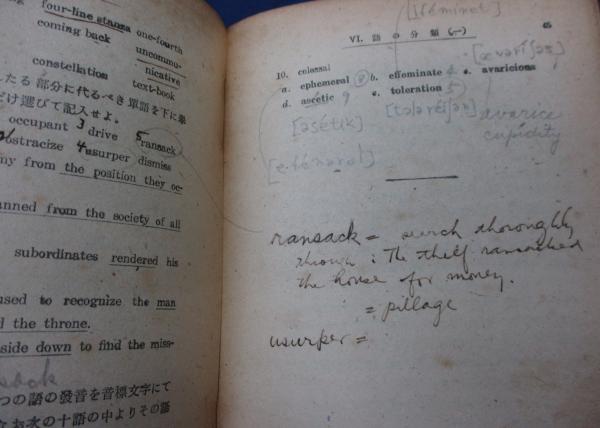 four-line stanza one-fourth
coming back uncommu-
nicative
constellation text-book
たる部分に代るべき單語を下に擧
だけ選びて記入せよ。
occupant 3 drive 5 ransack
ostracize 4 usurper dismiss
my from the position they oc-
anned from the society of all
subordinates rendered his
used to recognize the man
d the throne.
side down to find the miss-
sack
つの語の發音を音標文字にて
お次の十語の中よりその語
VI. 語の分類(一) 65
10. colossal
a. ephemeral 8 b. effeminate 4 c. avaricious
d. ascetic 9 e. toleration 5
avarice
cupidity
[əsétik]
ransack = search thoroughly
through : The thief ransacked
the house for money.
= pillage
usurper =